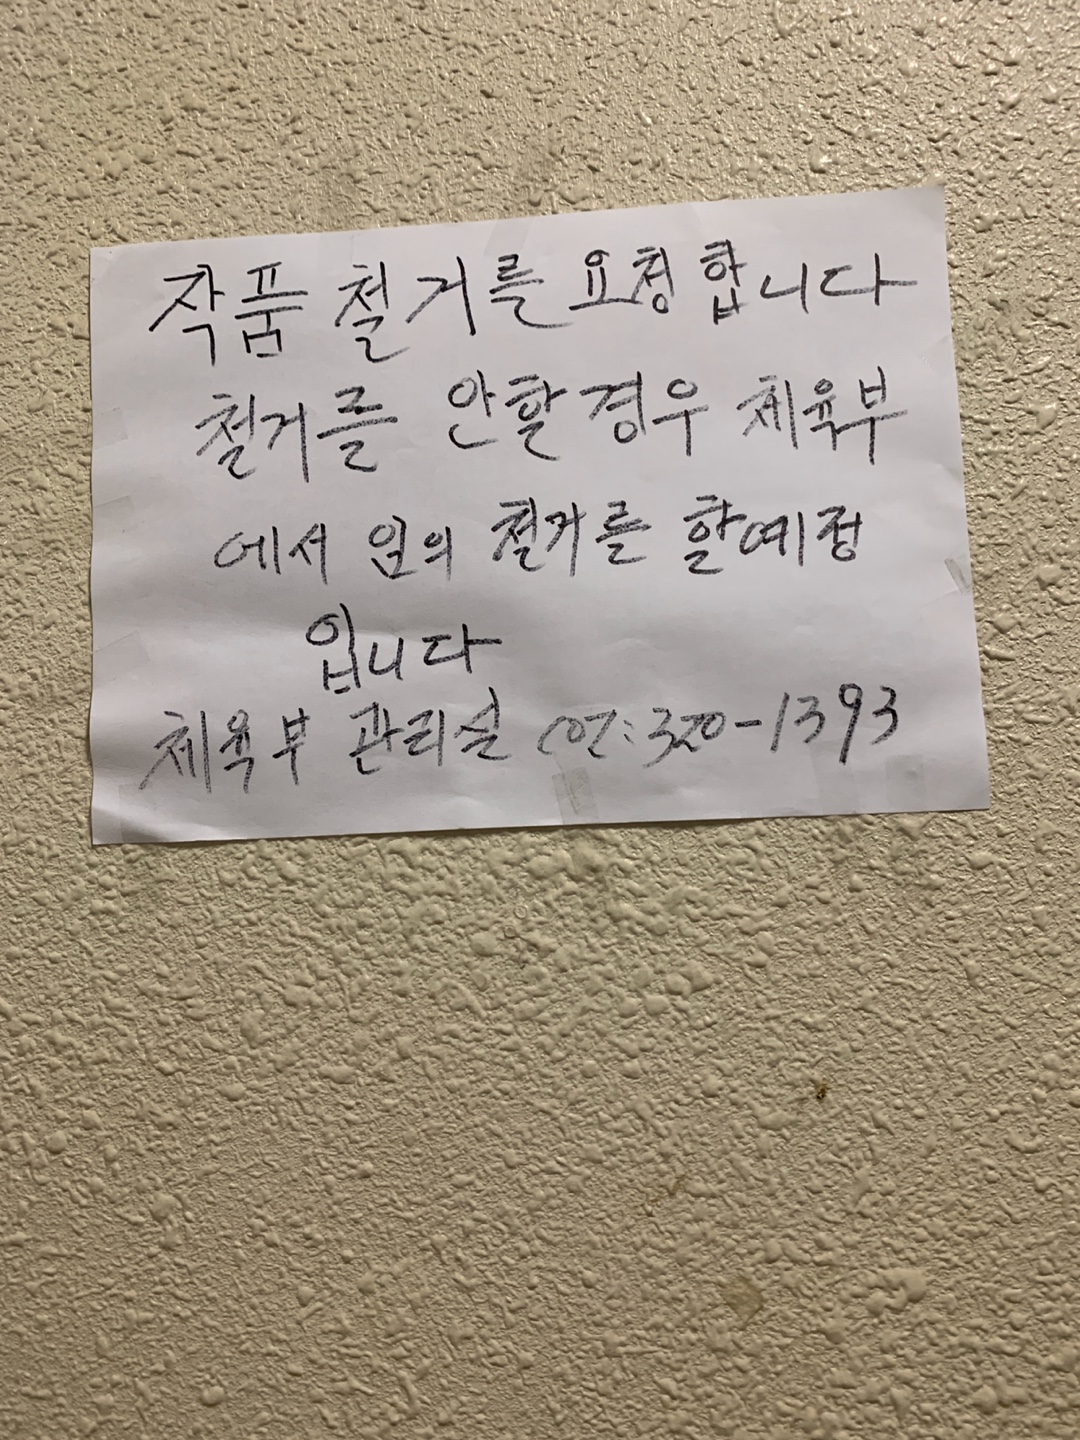 작품 철거를 요청합니다
철거를 안할경우 체육부
에서 임의 철거를 할예정
입니다
체육부 관리실 02:320-1393